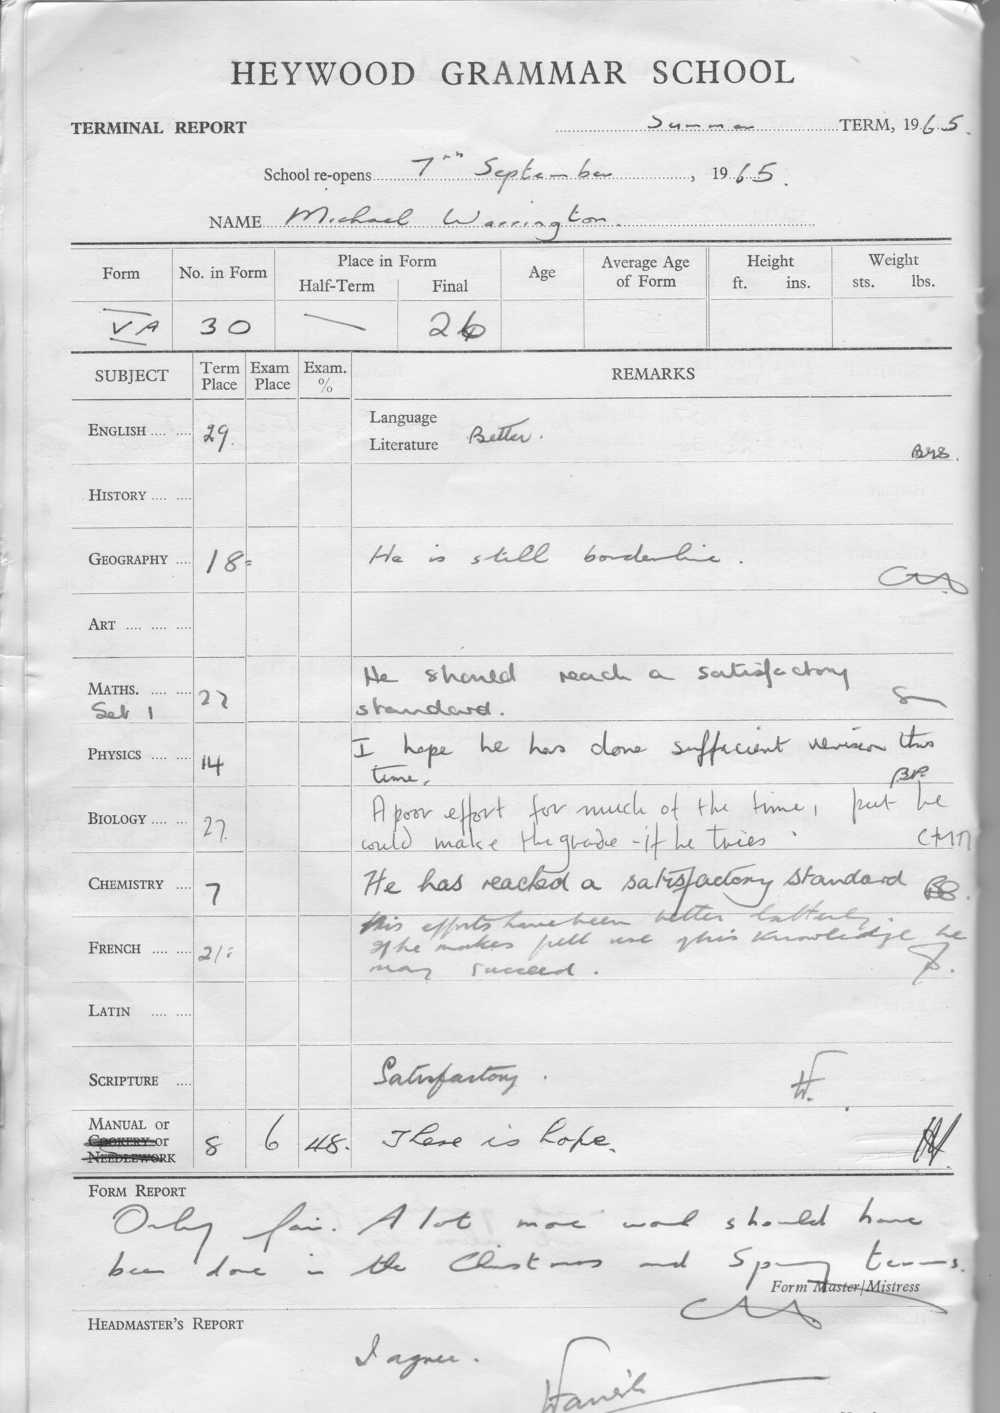 HEYWOOD GRAMMAR SCHOOL
TERMINAL REPORT Summer TERM, 1965.
School re-opens 7th September, 1965.
NAME Michael Warrington.
Form No. in Form Place in Form Age Average Age of Form Height Weight
Half-Term Final ft. ins. sts. lbs.
VA 30 — 26
SUBJECT Term Place Exam Place Exam. % REMARKS
ENGLISH .... .... 29. Language
Literature Better.
HISTORY .... ....
GEOGRAPHY .... 18= He is still borderline.
ART .... .... ....
MATHS. .... .... 22 He should reach a satisfactory
Set 1 standard.
PHYSICS .... .... 14 I hope he has done sufficient revision this
time. BP.
BIOLOGY .... .... 27. A poor effort for much of the time, but he
could make the grade - if he tries. CMM
CHEMISTRY .... 7 He has reached a satisfactory standard
FRENCH .... .... 21= His efforts have been better latterly.
If he makes full use of his knowledge he
may succeed.
LATIN .... ....
SCRIPTURE .... Satisfactory.
MANUAL or
COOKERY or 8 6 48. There is hope. HH.
NEEDLEWORK
FORM REPORT
Only fair. A lot more work should have
been done in the Christmas and Spring terms.
Form Master/Mistress
HEADMASTER'S REPORT
I agree.